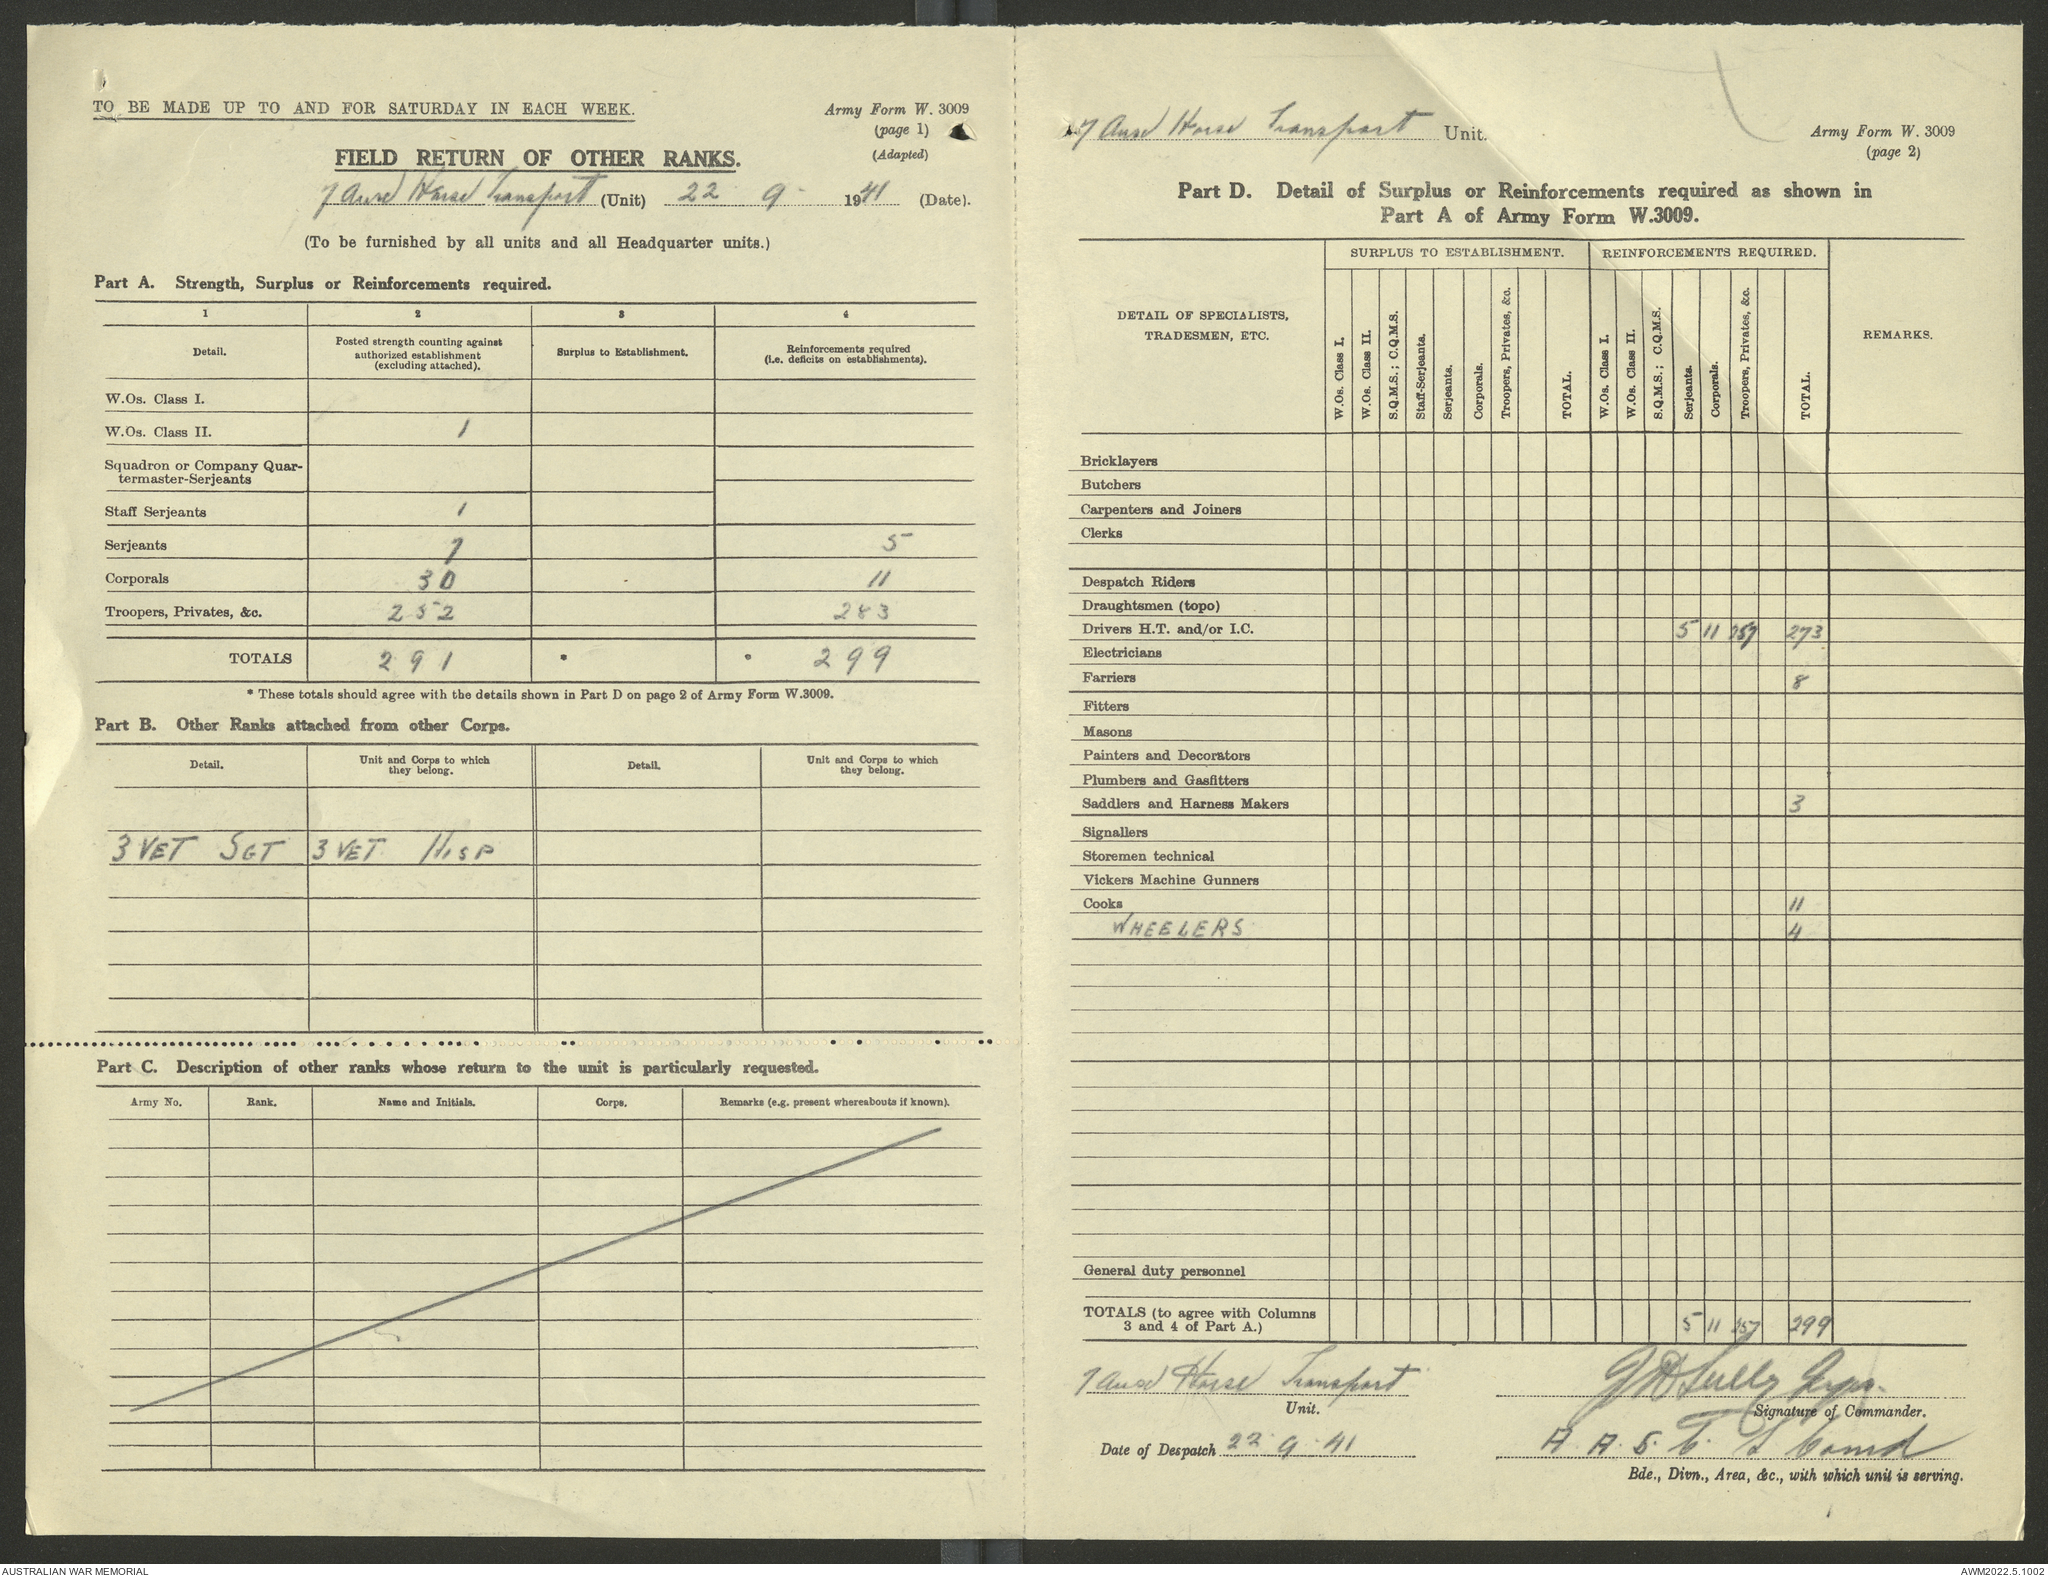 TO BE MADE UP TO AND FOR SATURDAY IN EACH WEEK.
Army Form W. 3009
(page 1)
(Adapted)
FIELD RETURN OF OTHER RANKS.
7 Aust Horse Transport (Unit) 22 9 1941 (Date).
(To be furnished by all units and all Headquarter units.)
Part A. Strength, Surplus or Reinforcements required.
1 2 3 4
Detail. Posted strength counting against authorized establishment (excluding attached). Surplus to Establishment. Reinforcements required (i.e. deficits on establishments).
W.Os. Class I.
W.Os. Class II. 1
Squadron or Company Quar-
termaster-Serjeants
Staff Serjeants 1
Serjeants 7 5
Corporals 30 11
Troopers, Privates, &c. 252 283
TOTALS 291 * * 299
* These totals should agree with the details shown in Part D on page 2 of Army Form W.3009.
Part B. Other Ranks attached from other Corps.
Detail. Unit and Corps to which they belong. Detail. Unit and Corps to which they belong.
3 VET SGT 3 VET HOSP
Part C. Description of other ranks whose return to the unit is particularly requested.
Army No. Rank. Name and Initials. Corps. Remarks (e.g. present whereabouts if known).
7 Aust Horse Transport Unit.
Army Form W. 3009
(page 2)
Part D. Detail of Surplus or Reinforcements required as shown in
Part A of Army Form W.3009.
SURPLUS TO ESTABLISHMENT. REINFORCEMENTS REQUIRED.
DETAIL OF SPECIALISTS,
TRADESMEN, ETC.
W.Os. Class I. W.Os. Class II. S.Q.M.S.; C.Q.M.S. Staff-Serjeants. Serjeants. Corporals. Troopers, Privates, &c. TOTAL. W.Os. Class I. W.Os. Class II. S.Q.M.S.; C.Q.M.S. Serjeants. Corporals. Troopers, Privates, &c. TOTAL.
REMARKS.
Bricklayers
Butchers
Carpenters and Joiners
Clerks
Despatch Riders
Draughtsmen (topo)
Drivers H.T. and/or I.C. 5 11 257 273
Electricians
Farriers 8
Fitters
Masons
Painters and Decorators
Plumbers and Gasfitters
Saddlers and Harness Makers 3
Signallers
Storemen technical
Vickers Machine Gunners
Cooks 11
WHEELERS 4
General duty personnel
TOTALS (to agree with Columns
3 and 4 of Part A.) 5 11 257 299
7 Aust Horse Transport
Unit.
Signature of Commander.
Date of Despatch 22.9.41
A.A.S.C.
Bde., Divn., Area, &c., with which unit is serving.
AUSTRALIAN WAR MEMORIAL
AWM2022.5.1002